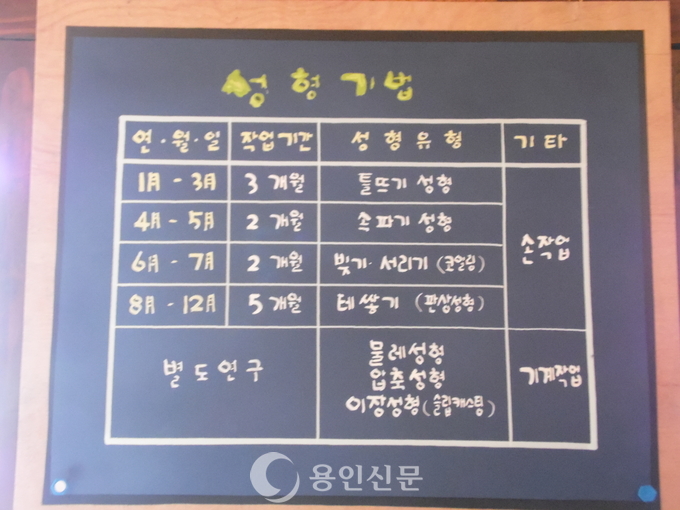 성형기법
연·월·일 작업기간 성형유형 기타
1月 - 3月 3 개월 틀뜨기 성형
4月 - 5月 2 개월 속파기 성형
손작업
6月 - 7月 2 개월 빚기·서리기 (코일링)
8月 - 12月 5 개월 테쌓기 (판상성형)
물레성형
별도연구 압축성형 기계작업
이장성형 (슬립캐스팅)
용인신문